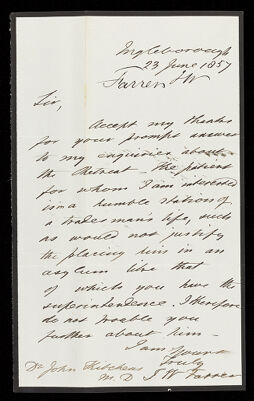 Ingleborough
23 June 1857
Farren J W
Sir,
Accept my thanks
for your prompt answer
to my enquiries about
the Retreat – the patient
for whom I am interested
is in a humble station of
a tradesman's life, such
as would not justify
the placing him in an
asylum like that
of which you have the
superintendence. I therefore
do not trouble you
further about him –
I am yours
truly
J W Farren
Dr John Kitchens
M. D